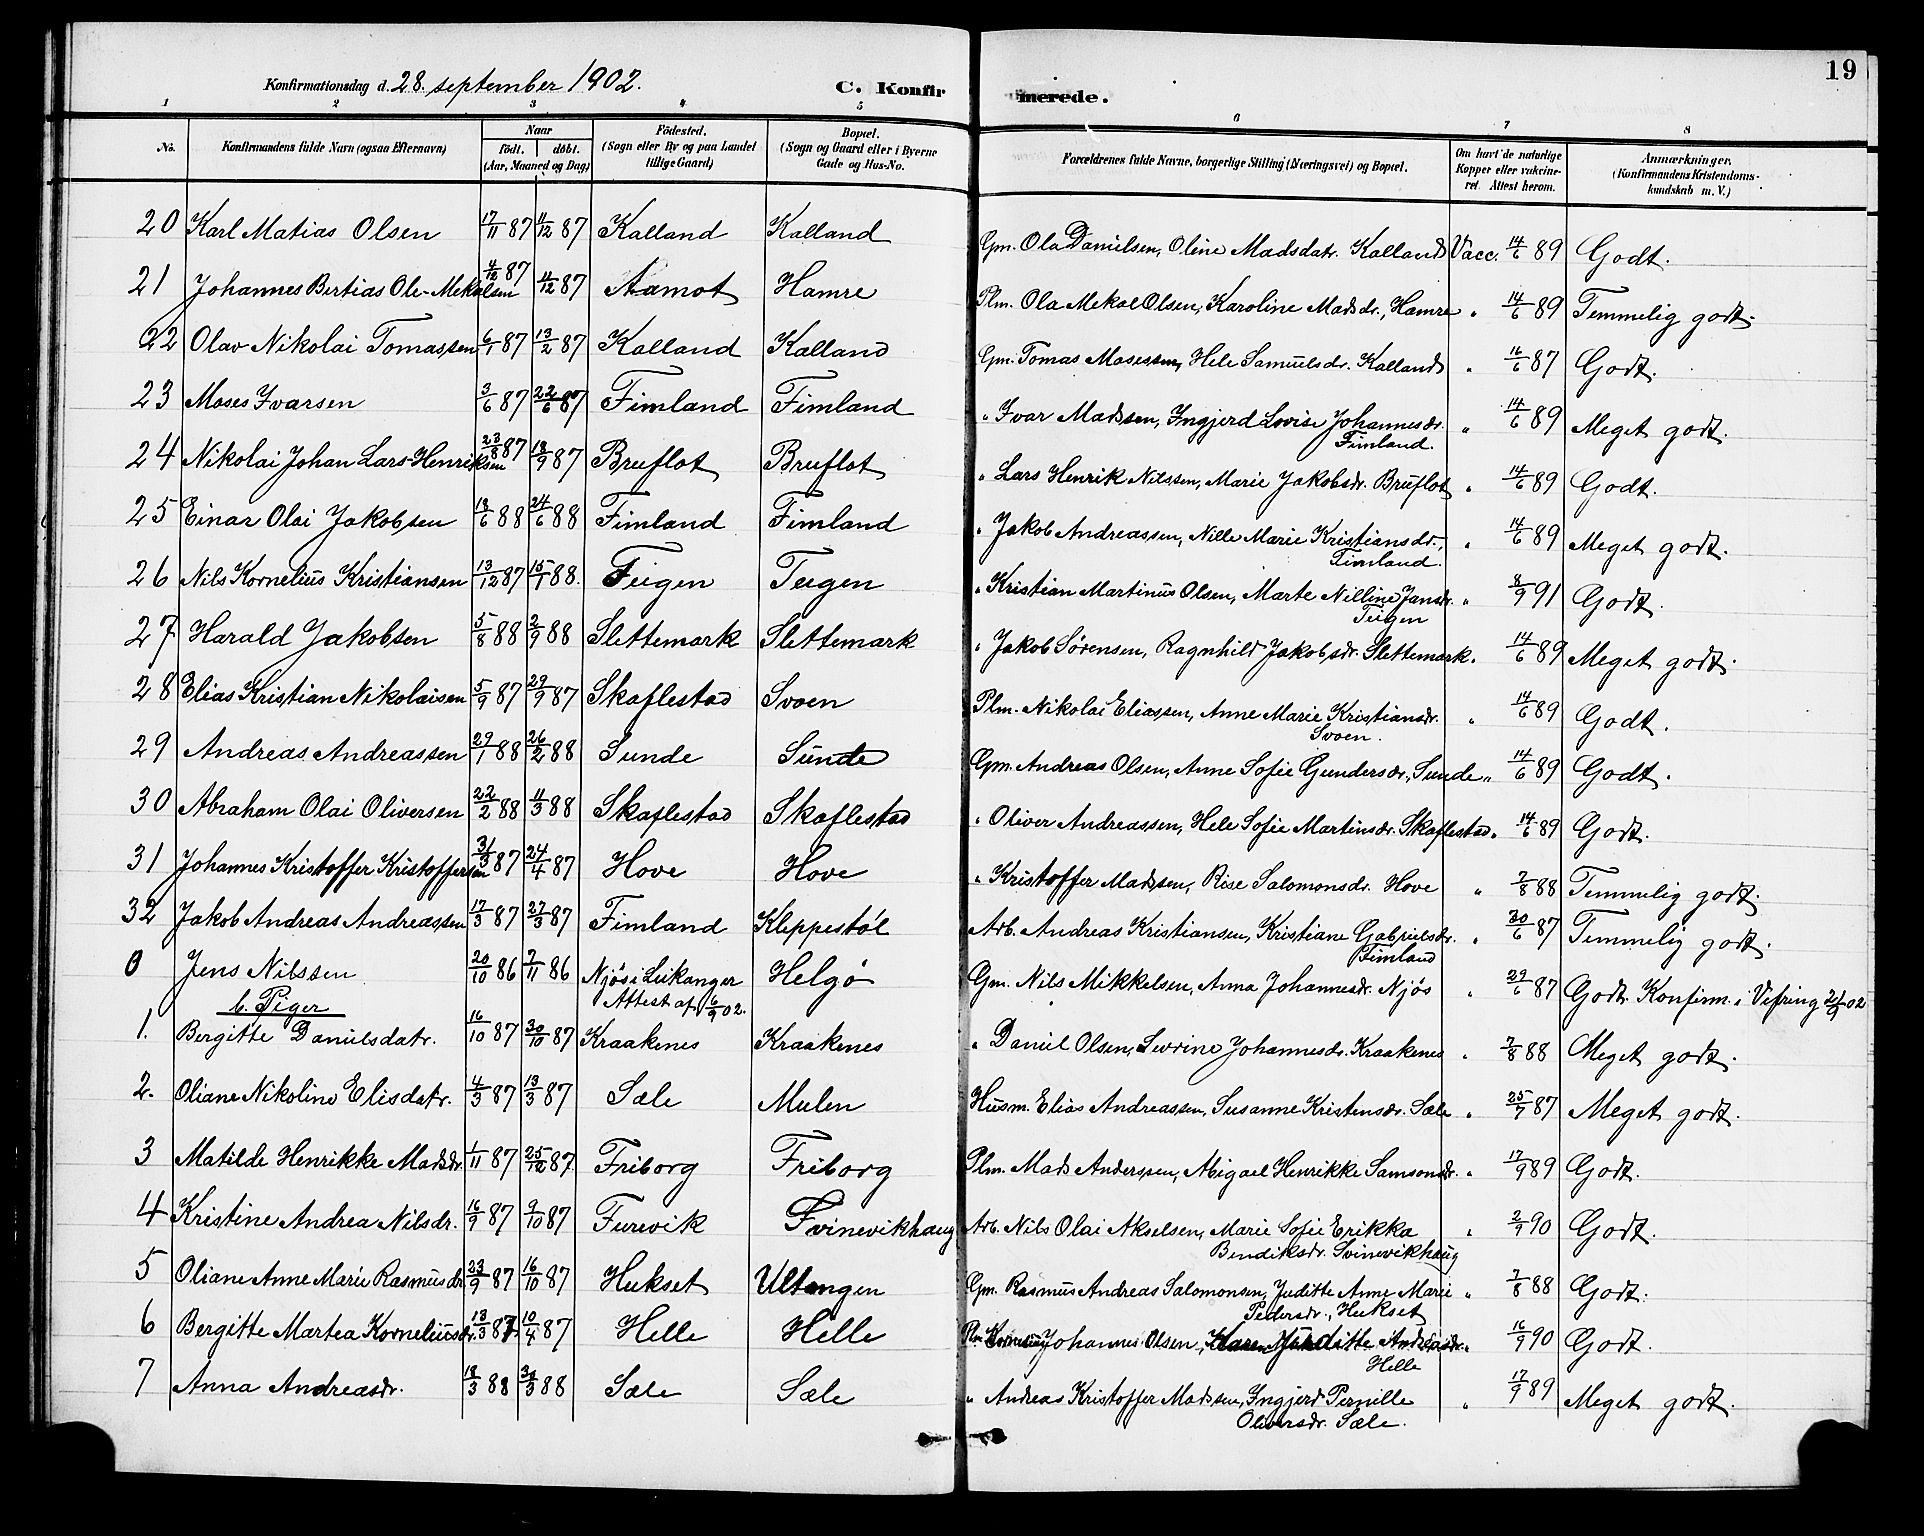 19
Konfirmationsdag d. 28. september 1902.
C. Konfirmerede.
1 2 3 4 5 6 7 8
No. Konfirmandens fulde Navn (ogsaa Efternavn) Naar født. døbt. (Aar, Maaned og Dag) Fødested. (Sogn eller By og paa Landet tillige Gaard) Bopæl. (Sogn og Gaard eller i Byerne Gade og Hus-No. Forældrenes fulde Navne, borgerlige Stilling (Næringsvei) og Bopæl. Om havt de naturlige Kopper eller vakcineret. Attest herom. Anmærkninger. (Konfirmandens Kristendomskundskab m. V.)
20 Karl Matias Olsen 17/11 87 11/12 87 Kalland Kalland Gm. Ola Danielsen, Oline Madsdatr. Kalland Vacc. 14/6 89 Godt.
21 Johannes Bertias Ole-Mekalsen 4/12 87 11/12 87 Aamot Hamre Plm. Ola Mekal Olsen, Karoline Madsdr., Hamre " 14/6 89 Temmelig godt.
22 Olav Nikolai Tomassen 6/1 87 13/2 87 Kalland Kalland Gm. Tomas Mosessen, Hele Samuelsdr. Kalland " 16/6 87 Godt.
23 Moses Ivarsen 3/6 87 22/6 87 Fimland Fimland " Ivar Madssen, Ingjerd Lovise Johannesdr. " 14/6 89 Meget godt.
Fimland.
24 Nikolai Johan Lars-Henriksen 23/8 87 18/9 87 Bruflot Bruflot " Lars Henrik Nilssen, Marie Jakobsdr. Bruflot " 14/6 89 Godt.
25 Einar Olai Jakobsen 18/6 88 24/6 88 Fimland Fimland " Jakob Andreassen, Nille Marie Kristiansdr., " 14/6 89 Meget godt.
Fimland.
26 Nils Kornelius Kristiansen 13/12 87 15/1 88. Teigen Teigen " Kristian Martinus Olsen, Marte Nilline Jansdr. " 8/9 91 Godt.
Teigen
27 Harald Jakobsen 5/8 88 2/9 88 Slettemark Slettemark " Jakob Sørensen, Ragnhild Jakobsdr. Slettemark. 14/6 89 Meget godt.
28 Elias Kristian Nikolaisen 5/9 87 29/9 87 Skaflestad Svoen Plm. Nikolai Eliassen, Anne Marie Kristiansdr. " 14/6 89 Godt.
Svoen.
29 Andreas Andreassen 29/1 88 26/2 88 Sunde Sunde Gm. Andreas Olsen, Anne Sofie Gundersdr., Sunde " 14/6 89 Godt.
30 Abraham Olai Oliversen 22/2 88 11/3 88 Skaflestad Skaflestad " Oliver Andreassen, Hele Sofie Martinsdr. Skaflestad " 14/6 89 Godt.
31 Johannes Kristoffer Kristoffersen 31/3 87 24/4 87 Hove Hove " Kristoffer Madssen, Rise Salomonsdr. Hove " 7/8 88 Temmelig godt.
32 Jakob Andreas Andreassen 17/3 87 27/3 87 Fimland Kleppestøl Arb. Andreas Kristiansen, Kristiane Gabrielsdr. " 30/6 87 Temmelig godt.
Fimland
0 Jens Nilssen 20/10 86 7/11 86 Njøs i Leikanger Helgø Gm. Nils Mikkelsen, Anna Johannesdr. Njøs " 29/6 87 Godt. Konfirm. i Vefring 02
Attest af 6/9 02.
b. Piger
1. Bergitte Danielsdatr. 16/10 87 30/10 87 Kraakenes Kraakenes " Daniel Olsen, Sevrine Johannesdr. Kraakenes " 7/8 88 Meget godt.
2. Oliane Nikoline Elisdatr. 4/3 87 13/3 87 Sæle Mulen Husm. Elias Andreassen, Susanne Kristensdr. Sæle " 25/7 87 Meget godt.
3 Matilde Henrikke Madsdr. 1/11 87 25/12 87 Friborg Friborg Plm. Mads Anderssen, Abigael Henrikke Samsonsdr. " 17/9 89 Godt.
4 Kristine Andrea Nilsdr. 16/9 87 9/10 87 Furevik Svinevikhaug Arb. Nils Olai Akselsen, Marie Sofie Erikka " 2/9 90 Godt.
Bendiksdr. Svinevikhaug
5 Oliane Anne Marie Rasmusdr. 23/9 87 16/10 87 Hukset Ultangen Gm. Rasmus Andreas Salomonsen, Juditte Anne Marie " 7/8 88 Godt.
Pedersdr., Hukset
6 Bergitte Martea Korneliusdr. 13/3 87 10/4 87 Helle Helle Plm. Kornelius Johannes Olsen, Karen Juditte Andersdr. " 16/9 90 Godt.
Helle
7 Anna Andreasdr. 18/3 88 30/3 88 Sæle Sæle " Andreas Kristoffer Madssen, Ingjerd Pernille " 17/9 89 Meget godt.
Oliversdr. Sæle.